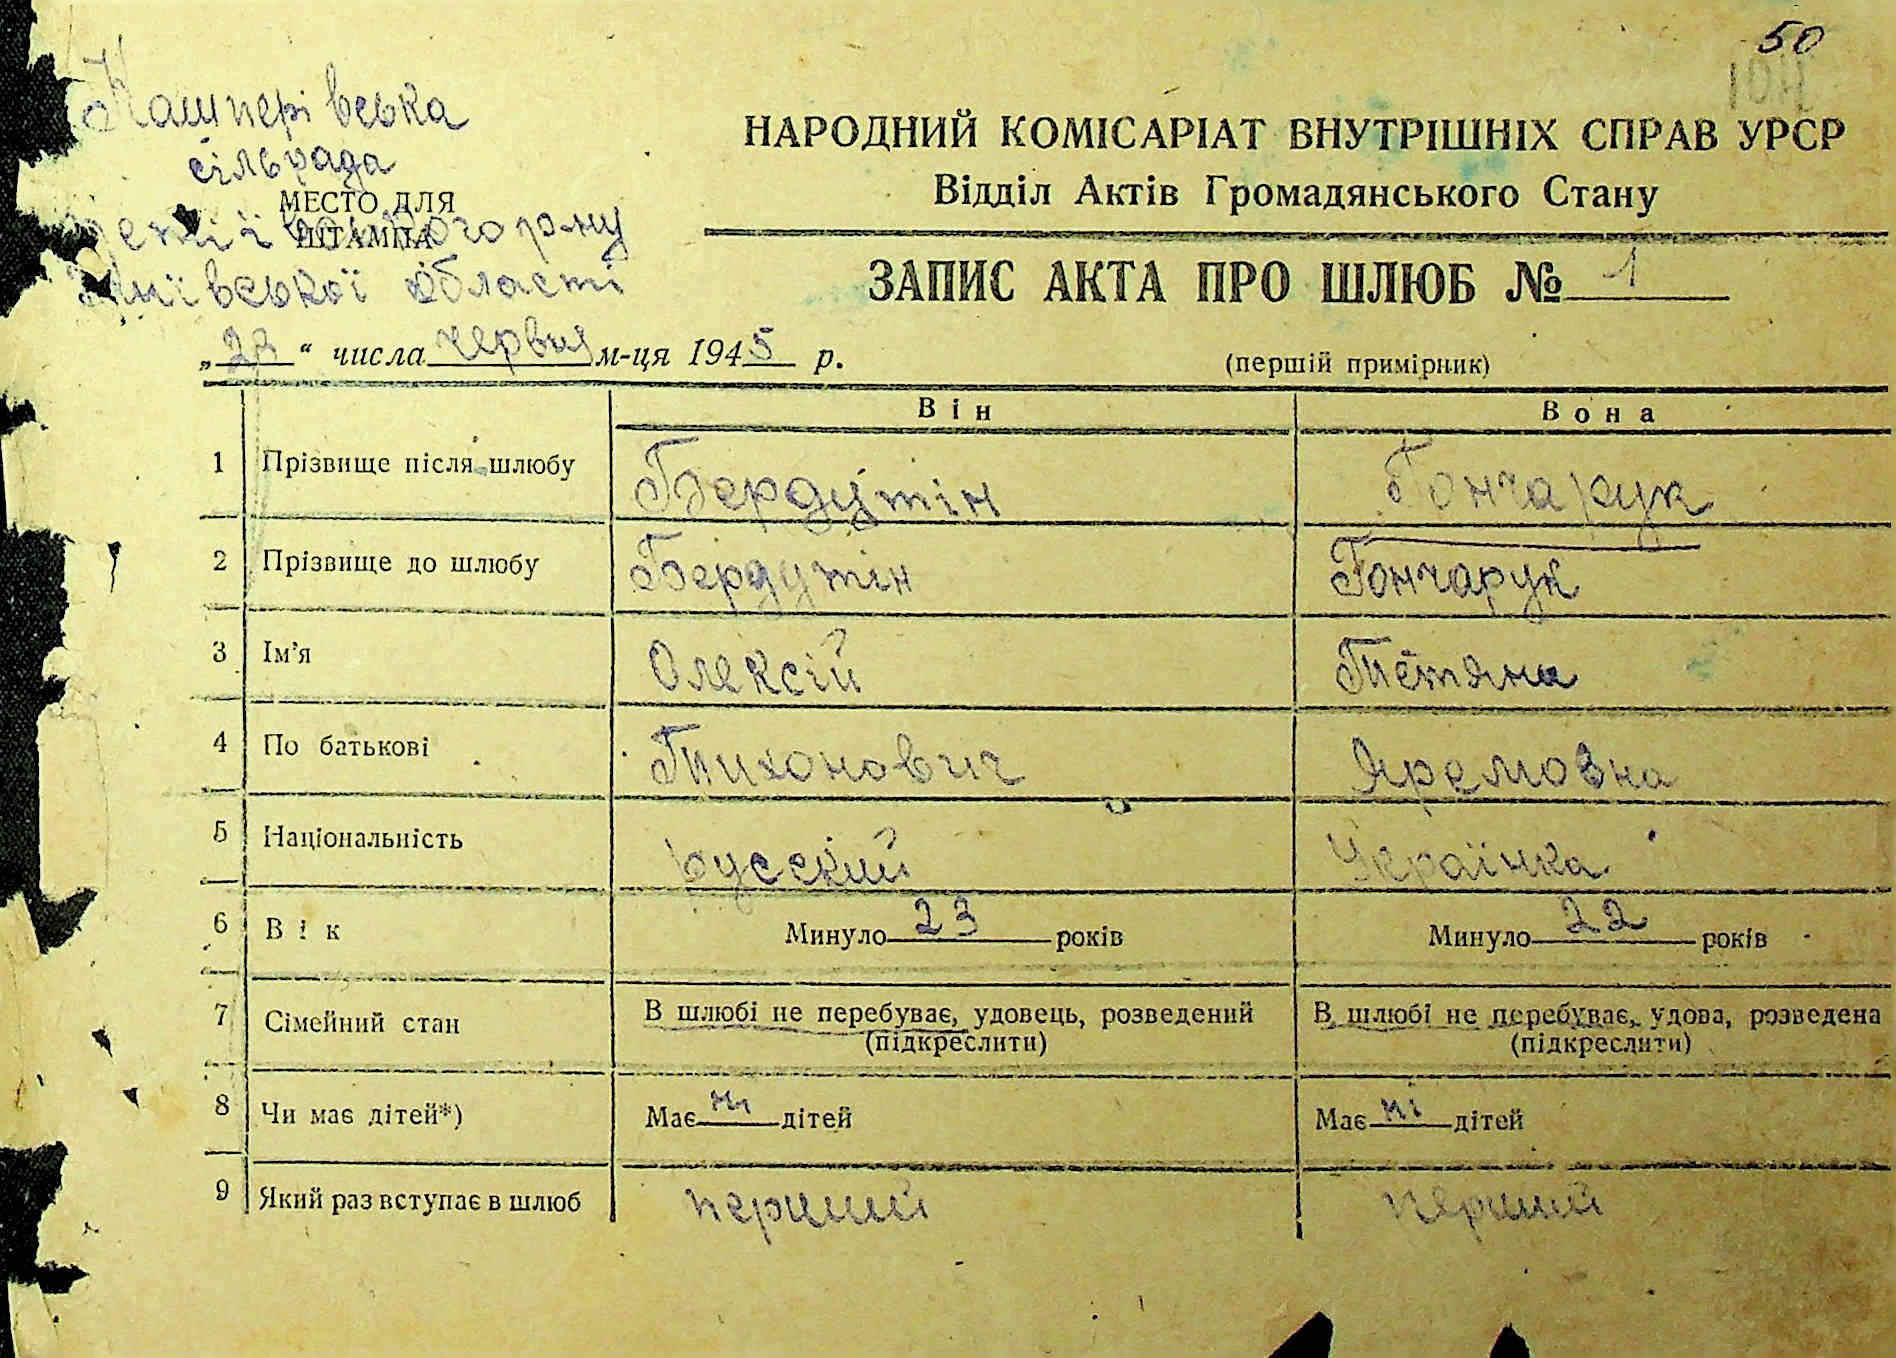 50
104
Кашперівська
сільрада
МЕСТО ДЛЯ
ШТАМПА
р-ну
Київської області
НАРОДНИЙ КОМІСАРІАТ ВНУТРІШНІХ СПРАВ УРСР
Відділ Актів Громадянського Стану
ЗАПИС АКТА ПРО ШЛЮБ № 1
„ “ числа червня м-ця 1945 р.
(перший примірник)
Він Вона
1 Прізвище після шлюбу Бердутін Гончарук
2 Прізвище до шлюбу Бердутін Гончарук
3 Ім’я Олексій Тетяна
4 По батькові Тихонович Яремовна
5 Національність русский Українка
6 Вік Минуло 23 років Минуло 22 років
7 Сімейний стан В шлюбі не перебуває, удовець, розведений В шлюбі не перебуває, удова, розведена
(підкреслити) (підкреслити)
8 Чи має дітей*) Має ні дітей Має ні дітей
9 Який раз вступає в шлюб перший перший